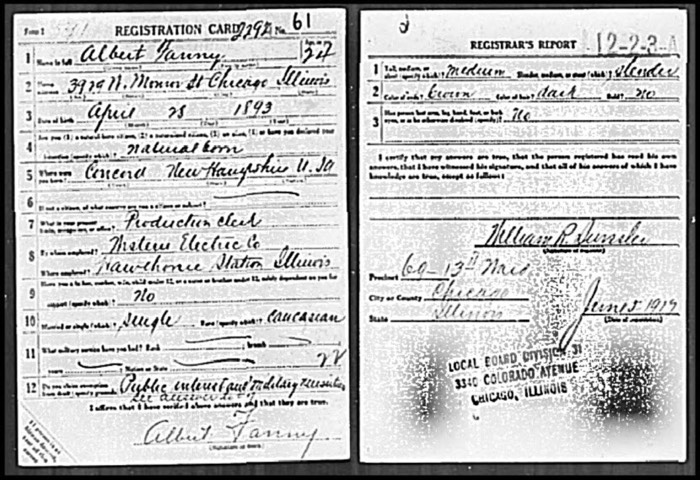 Form 1 REGISTRATION CARD 2292 No. 61
1 Name in full Albert Fanny 24
2 3929 W. Monroe St Chicago Illinois
3 Date of birth April 23 1893
4 Are you (1) a natural-born citizen, (2) a naturalized citizen, (3) an alien, (4) or have you declared your
intention (specify which)? Natural born
5 Where were you born? Concord New Hampshire U.S.A
6 If not a citizen, of what country are you a citizen or subject?
7 What is your present trade, occupation, or office? Production clerk
8 By whom employed? Western Electric Co
Where employed? Hawthorne Station Illinois
9 Have you a father, mother, wife, child under 12, or a sister or brother under 12, solely dependent on you for
support (specify which)? No
10 Married or single (which)? Single Race (specify which)? Caucasian
11 What military service have you had? Rank branch
years Nation or State
12 Do you claim exemption from draft (specify grounds)? Public interest and military
See answer
I affirm that I have verified above answers and that they are true.
Albert Fanny
REGISTRAR'S REPORT 12-2-3-A
1 Tall, medium, or short (specify which)? Medium Slender, medium, or stout (which)? Slender
2 Color of eyes? brown Color of hair? dark Bald? No
3 Has person lost arm, leg, hand, foot, or both
No
I certify that my answers are true, that the person registered has read his own
answers, that I have witnessed his signature, and that all of his answers of which I have
knowledge are true, except as follows:
William R.
Precinct 60-13th Ward
City or County Chicago
State Illinois
June 5 1917
LOCAL BOARD DIVISION 31
3340 COLORADO AVENUE
CHICAGO, ILLINOIS